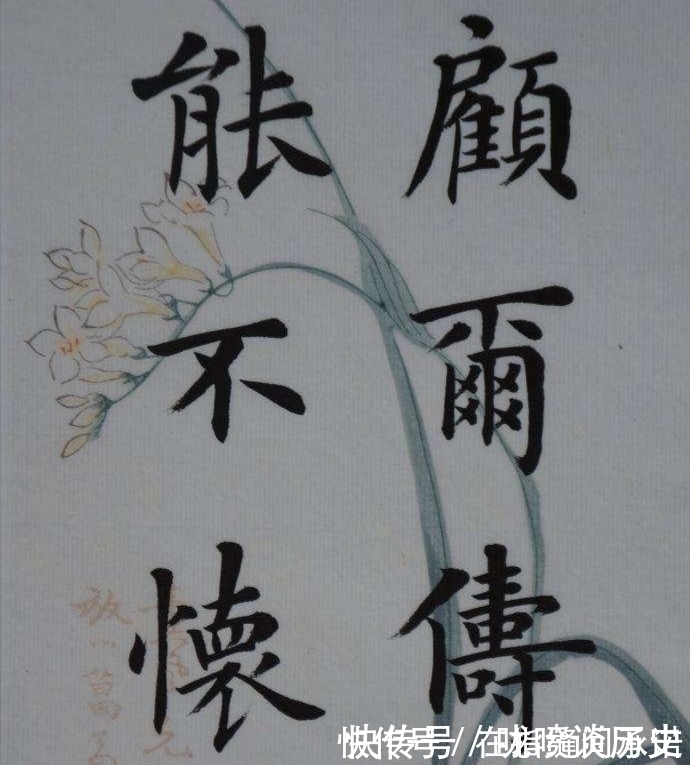 顧爾儔
能不懷
快传号